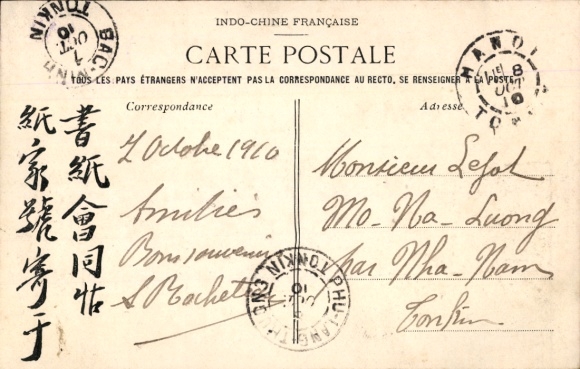 INDO-CHINE FRANÇAISE
CARTE POSTALE
TOUS LES PAYS ÉTRANGERS N'ACCEPTENT PAS LA CORRESPONDANCE AU RECTO, SE RENSEIGNER A LA POSTE
Correspondance
Adresse
BAC-NINH TONKIN
7
OCT
10
HANOI
8
OCT
10
TONKIN
書紙會同帖
紙家號寄于
7 Octobre 1910
Amitiés
Bons souvenirs
Monsieur
Mo-Na-Luong
par Nha-Nam
Tonkin
PHU-LANG-THUONG TONKIN
OCT
10